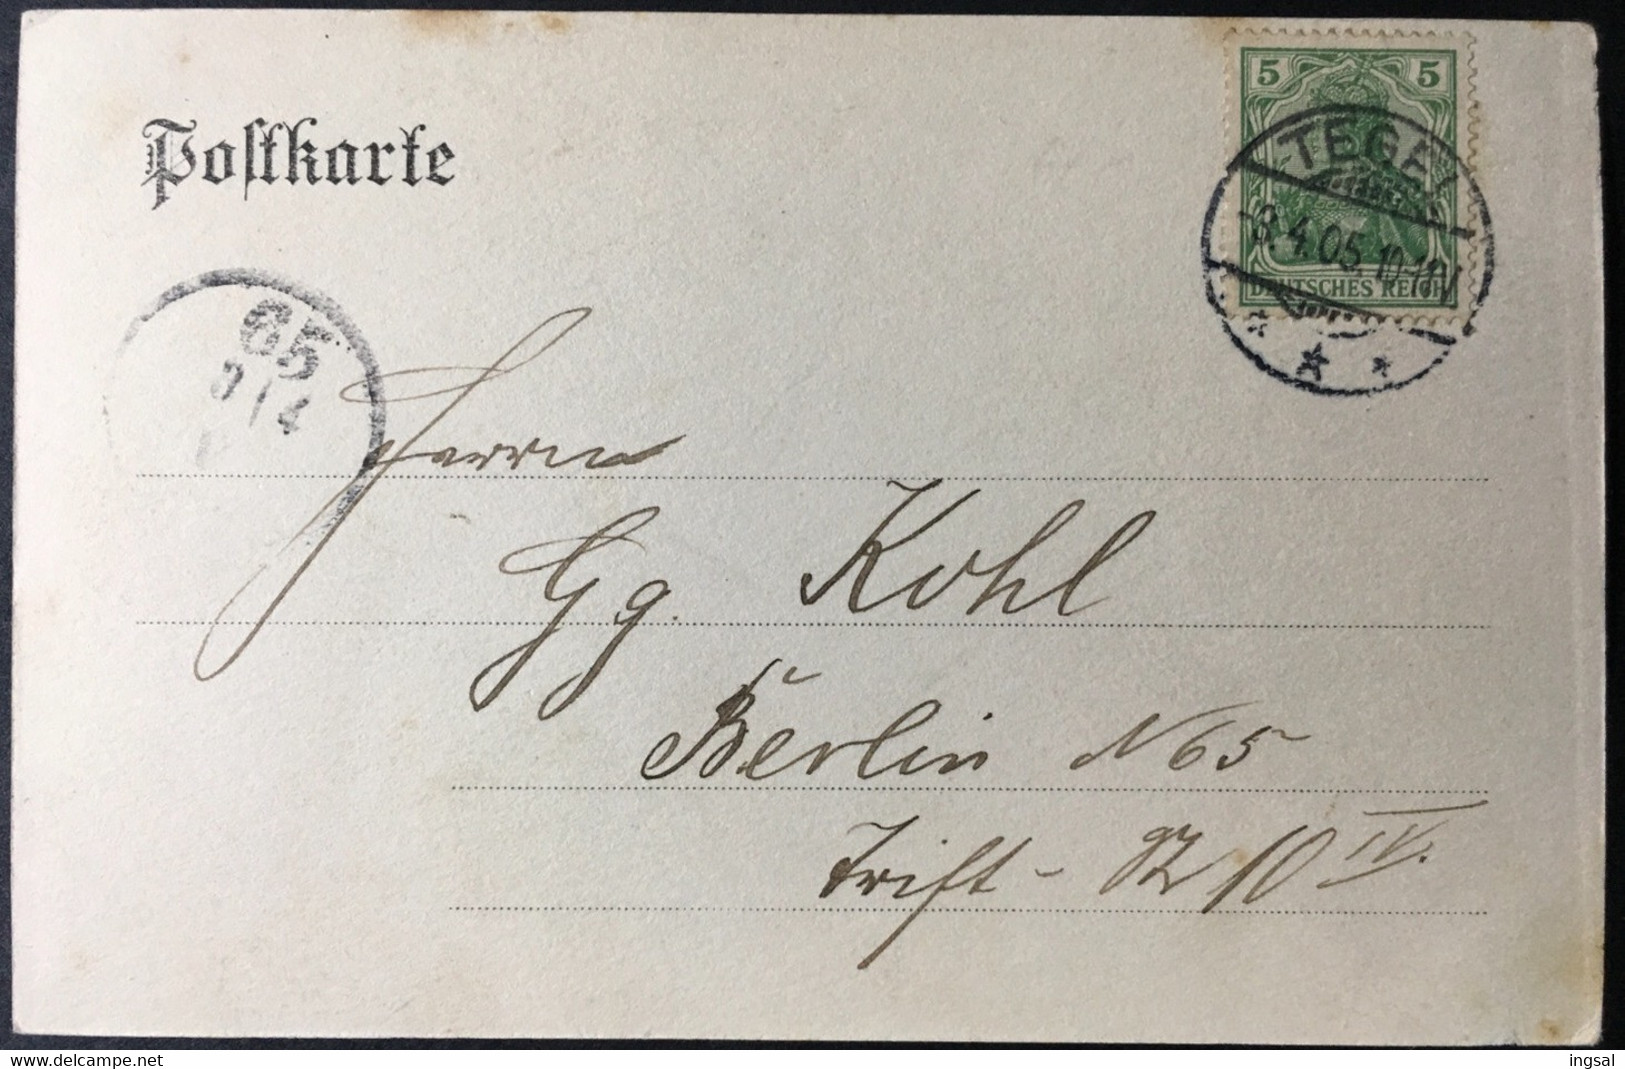 Postkarte
5 5
TEGEL
-8.4.05. 10-11V
DEUTSCHES REICH
65
/4
Herrn
Gg. Kohl
Berlin N 65
Trift-Str 10 IV.
www.delcampe.net
ingsal